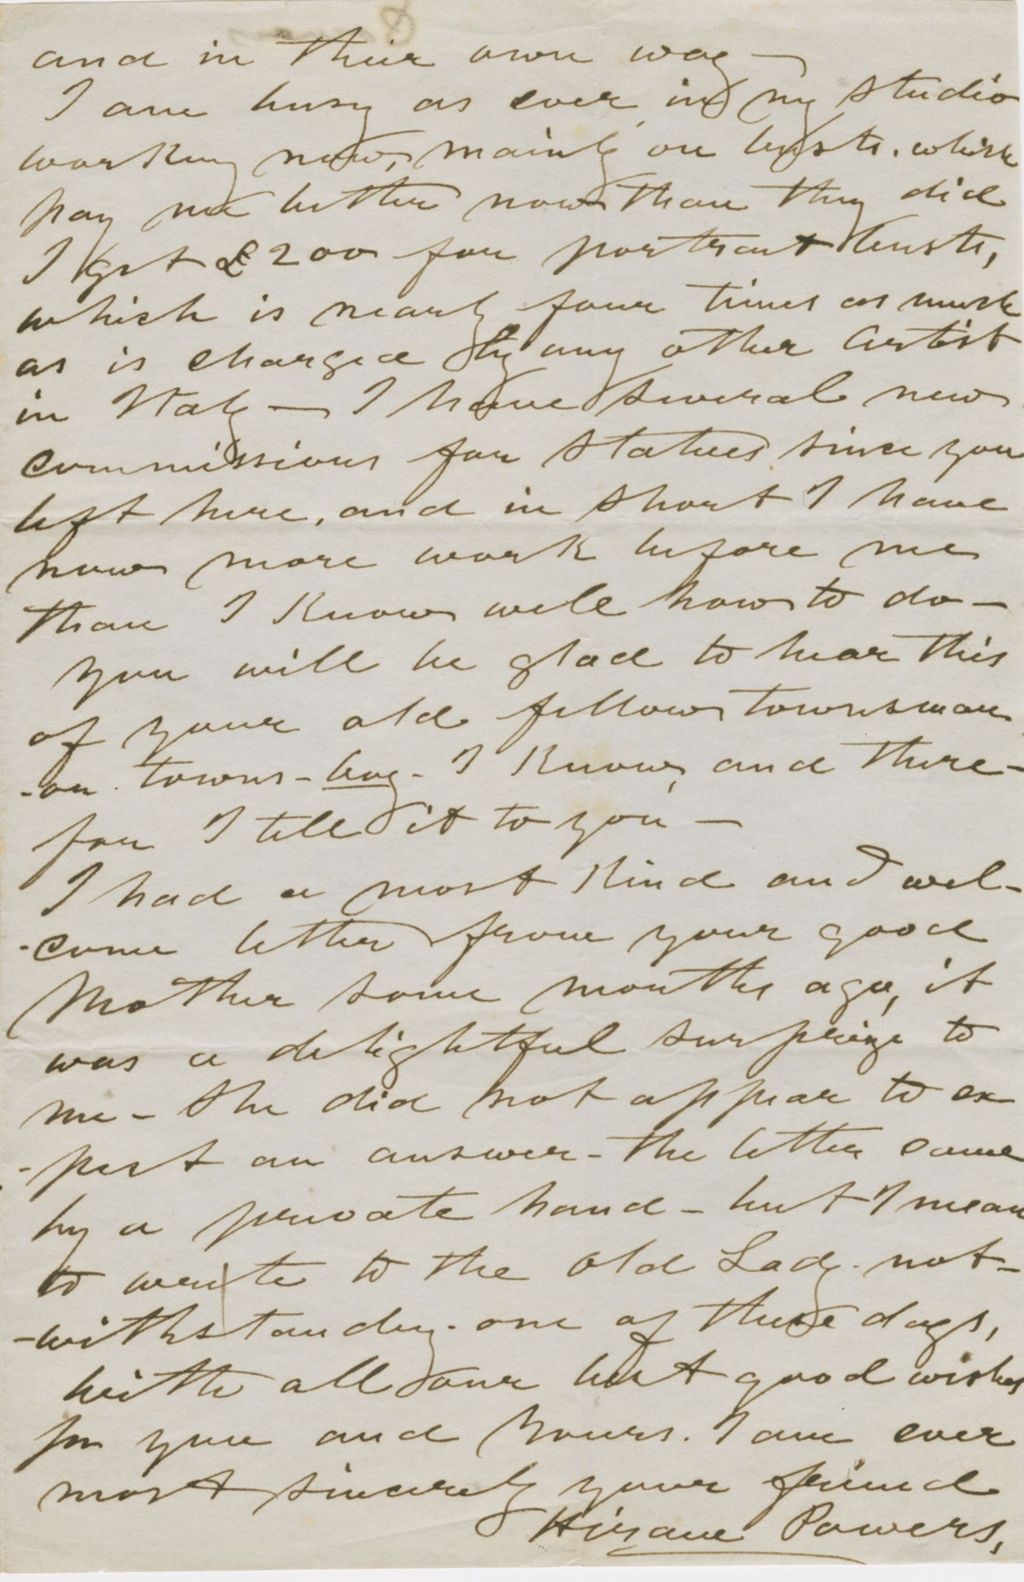 and in their own way —
I am busy as ever in my studio
working now, mainly on busts. which
pay me better now than they did
I get £200 for portrait busts,
which is nearly four times as much
as is charged by any other Artist
in Italy — I have several new
commissions for statues since you
left here, and in short I have
now more work before me
than I know well how to do —
you will be glad to hear this
of your old fellow townsman
-or towns-boy- I know, and there-
for I tell it to you —
I had a most kind and wel-
-come letter from your good
Mother some months ago, it
was a delightful surprize to
me - she did not appear to ex
-pect an answer - the letter came
by a private hand - but I mean
to write to the old Lady. not-
-withstanding. one of these days,
With all our best good wishes
for you and yours. I am ever
most sincerely your friend
Hiram Powers,